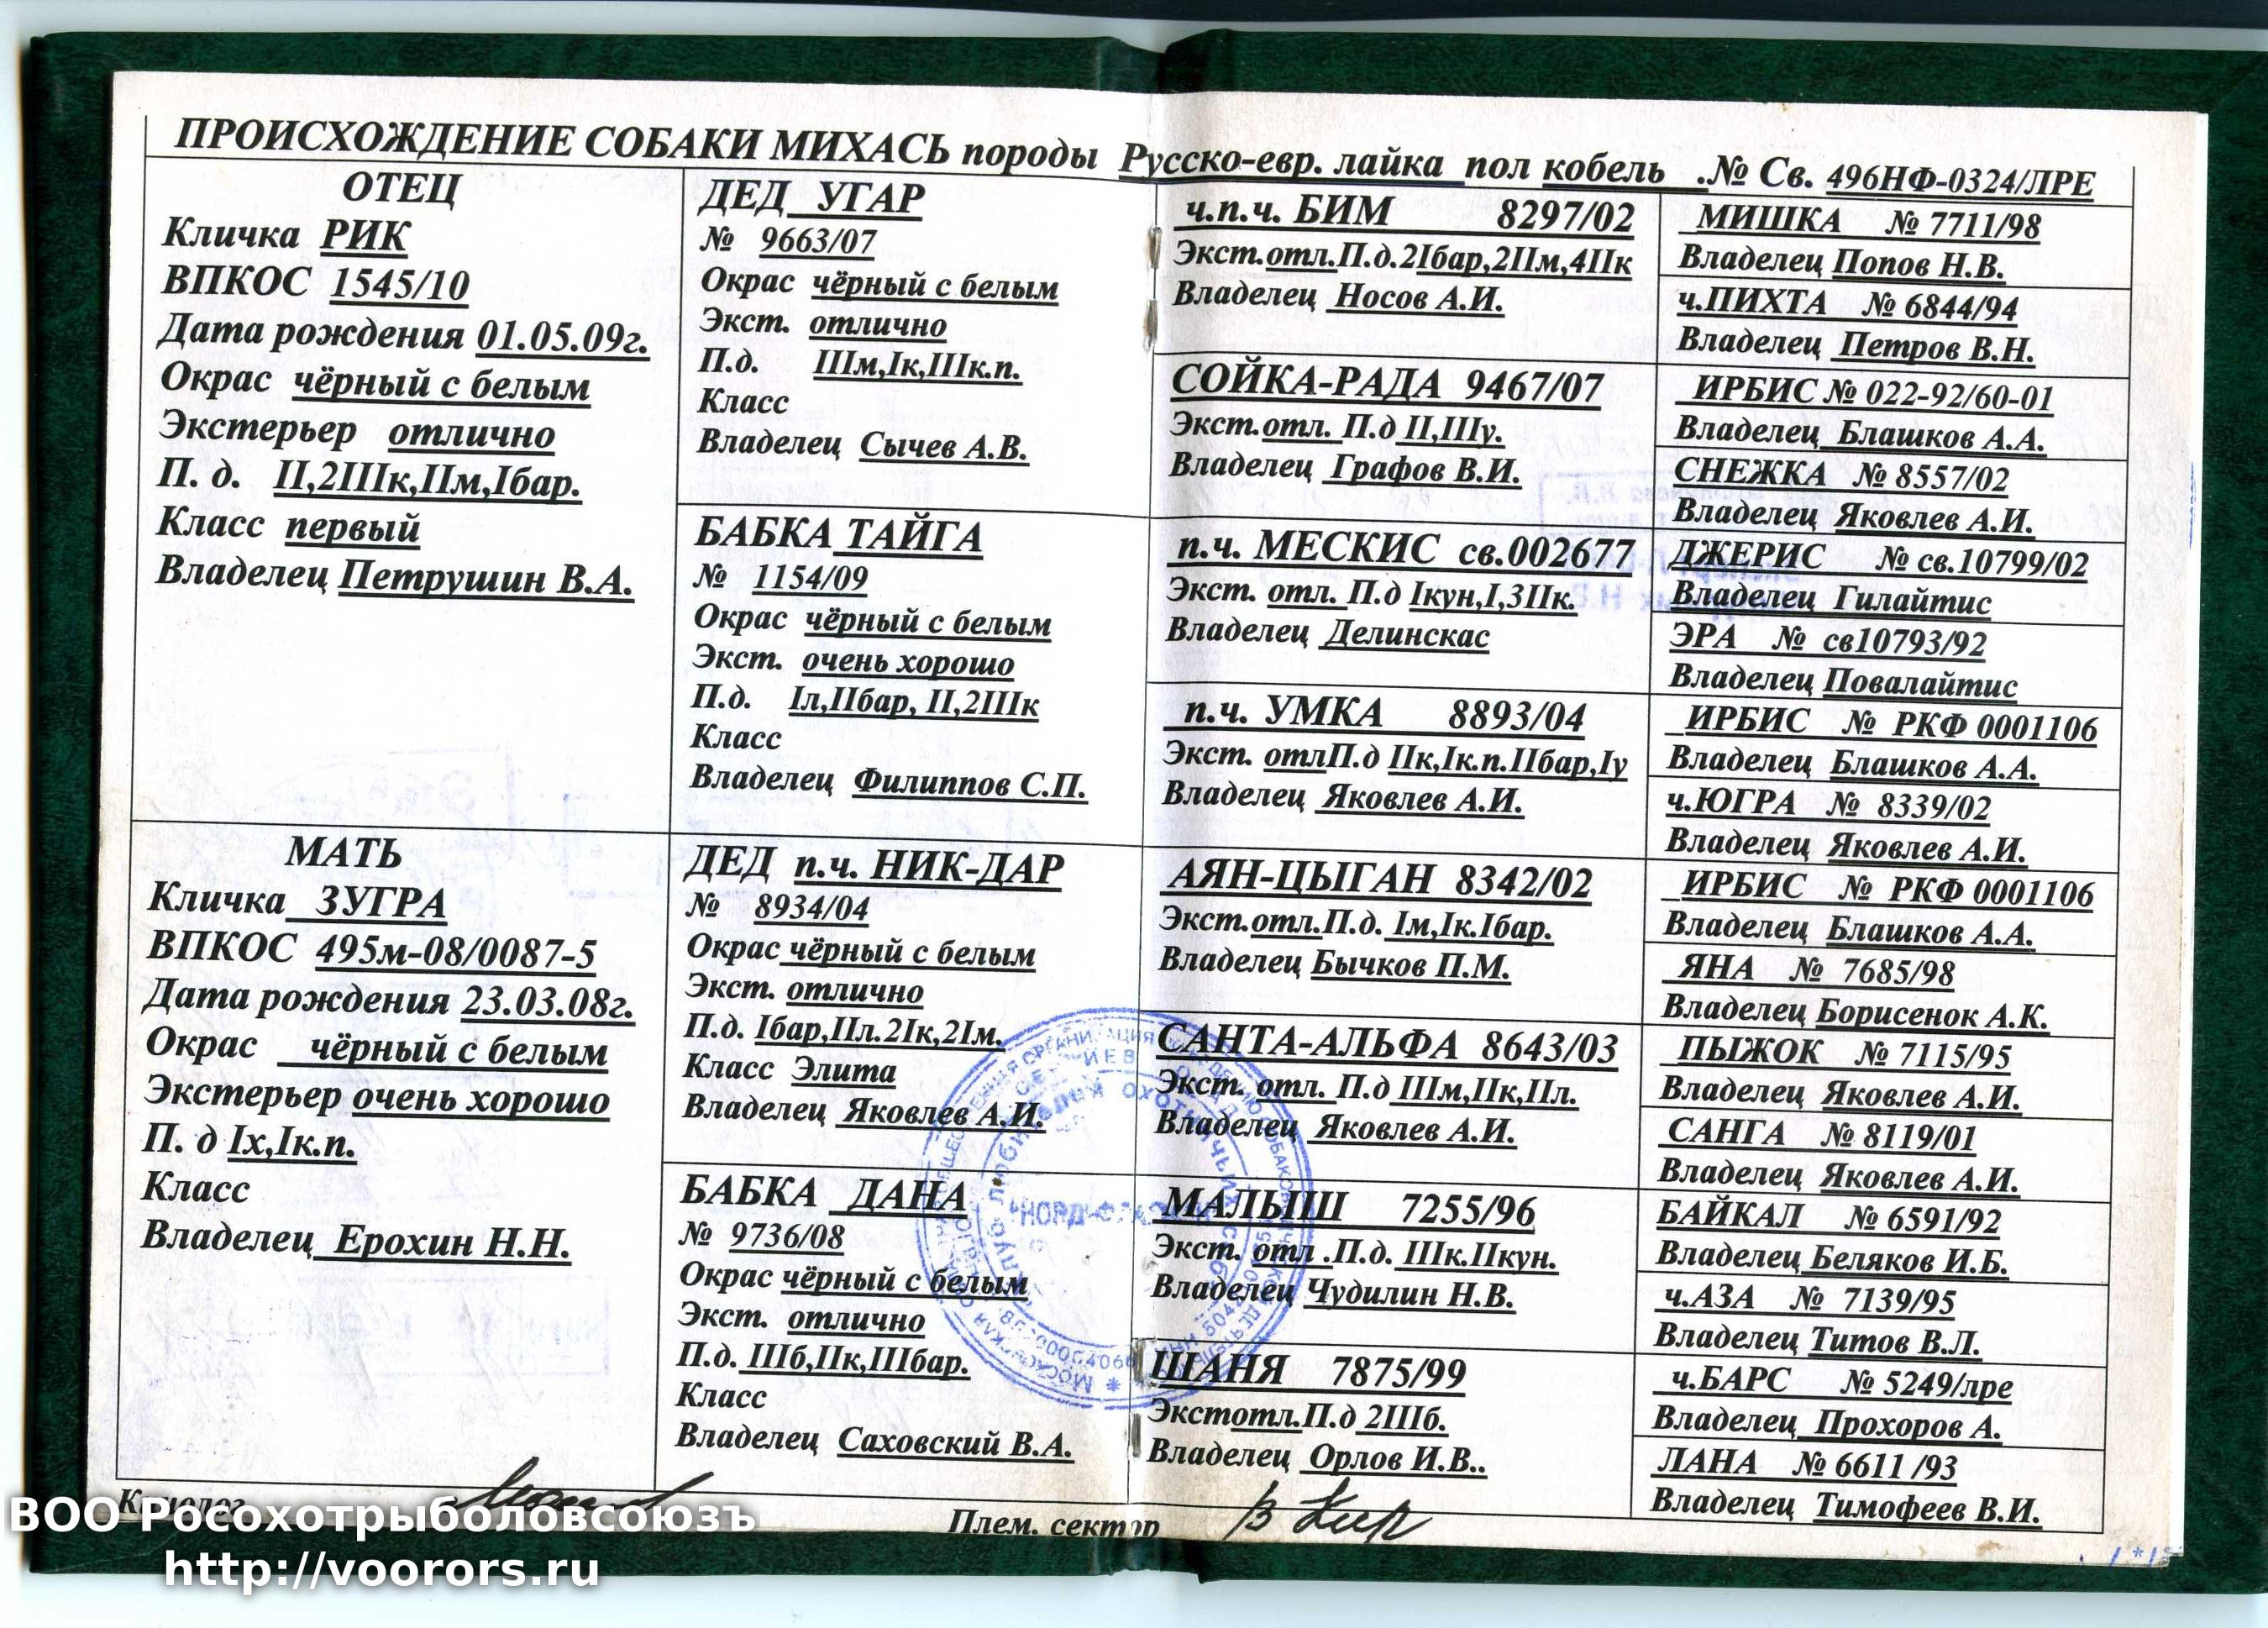 ПРОИСХОЖДЕНИЕ СОБАКИ МИХАСЬ породы Русско-евр. лайка пол кобель .№ Св. 496НФ-0324/ЛРЕ
ОТЕЦ
Кличка РИК
ВПКОС 1545/10
Дата рождения 01.05.09г.
Окрас чёрный с белым
Экстерьер отлично
П. д. II,2IIIк,IIм,Iбар.
Класс первый
Владелец Петрушин В.А.
МАТЬ
Кличка ЗУГРА
ВПКОС 495м-08/0087-5
Дата рождения 23.03.08г.
Окрас чёрный с белым
Экстерьер очень хорошо
П. д Iх,Iк.п.
Класс
Владелец Ерохин Н.Н.
ДЕД УГАР
№ 9663/07
Окрас чёрный с белым
Экст. отлично
П.д. IIIм,Iк,IIIк.п.
Класс
Владелец Сычев А.В.
БАБКА ТАЙГА
№ 1154/09
Окрас чёрный с белым
Экст. очень хорошо
П.д. Iл,IIбар, II,2IIIк
Класс
Владелец Филиппов С.П.
ДЕД п.ч. НИК-ДАР
№ 8934/04
Окрас чёрный с белым
Экст. отлично
П.д. Iбар,IIл.2Iк,2Iм.
Класс Элита
Владелец Яковлев А.И.
БАБКА ДАНА
№ 9736/08
Окрас чёрный с белым
Экст. отлично
П.д. IIIб,IIк,IIIбар.
Класс
Владелец Саховский В.А.
ч.п.ч. БИМ 8297/02
Экст.отл.П.д.2Iбар,2IIм,4IIк
Владелец Носов А.И.
СОЙКА-РАДА 9467/07
Экст.отл. П.д II,IIIу.
Владелец Графов В.И.
п.ч. МЕСКИС св.002677
Экст. отл. П.д Iкун,I,3IIк.
Владелец Делинскас
п.ч. УМКА 8893/04
Экст. отлП.д IIк,Iк.п.IIбар,Iу
Владелец Яковлев А.И.
АЯН-ЦЫГАН 8342/02
Экст.отл.П.д. Iм,Iк.Iбар.
Владелец Бычков П.М.
САНТА-АЛЬФА 8643/03
Экст. отл. П.д IIIм,IIк,IIл.
Владелец Яковлев А.И.
МАЛЫШ 7255/96
Экст. отл .П.д. IIIк.IIкун.
Владелец Чудилин Н.В.
ШАНЯ 7875/99
Экстотл.П.д 2IIIб.
Владелец Орлов И.В..
МИШКА № 7711/98
Владелец Попов Н.В.
ч.ПИХТА № 6844/94
Владелец Петров В.Н.
ИРБИС № 022-92/60-01
Владелец Блашков А.А.
СНЕЖКА № 8557/02
Владелец Яковлев А.И.
ДЖЕРИС № св.10799/02
Владелец Гилайтис
ЭРА № св10793/92
Владелец Повалайтис
ИРБИС № РКФ 0001106
Владелец Блашков А.А.
ч.ЮГРА № 8339/02
Владелец Яковлев А.И.
ИРБИС № РКФ 0001106
Владелец Блашков А.А.
ЯНА № 7685/98
Владелец Борисенок А.К.
ПЫЖОК № 7115/95
Владелец Яковлев А.И.
САНГА № 8119/01
Владелец Яковлев А.И.
БАЙКАЛ № 6591/92
Владелец Беляков И.Б.
ч.АЗА № 7139/95
Владелец Титов В.Л.
ч.БАРС № 5249/лре
Владелец Прохоров А.
ЛАНА № 6611 /93
Владелец Тимофеев В.И.
Кинолог
Плем. сектор
ВОО Росохотрыболовсоюзъ
http://voorors.ru